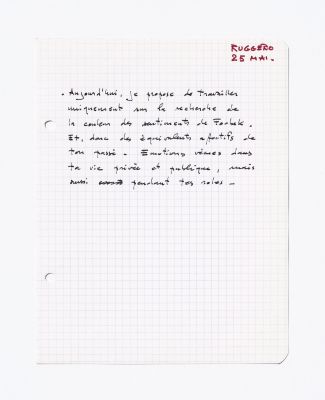 RUGGERO
25 MAI.
. Aujourd'hui, je propose de travailler
uniquement sur la recherche de
la couleur des sentiments de
Et, donc des équivalents affectifs de
ton passé. Emotions vécues dans
ta vie privée et publique, mais
aussi pendant tes roles.